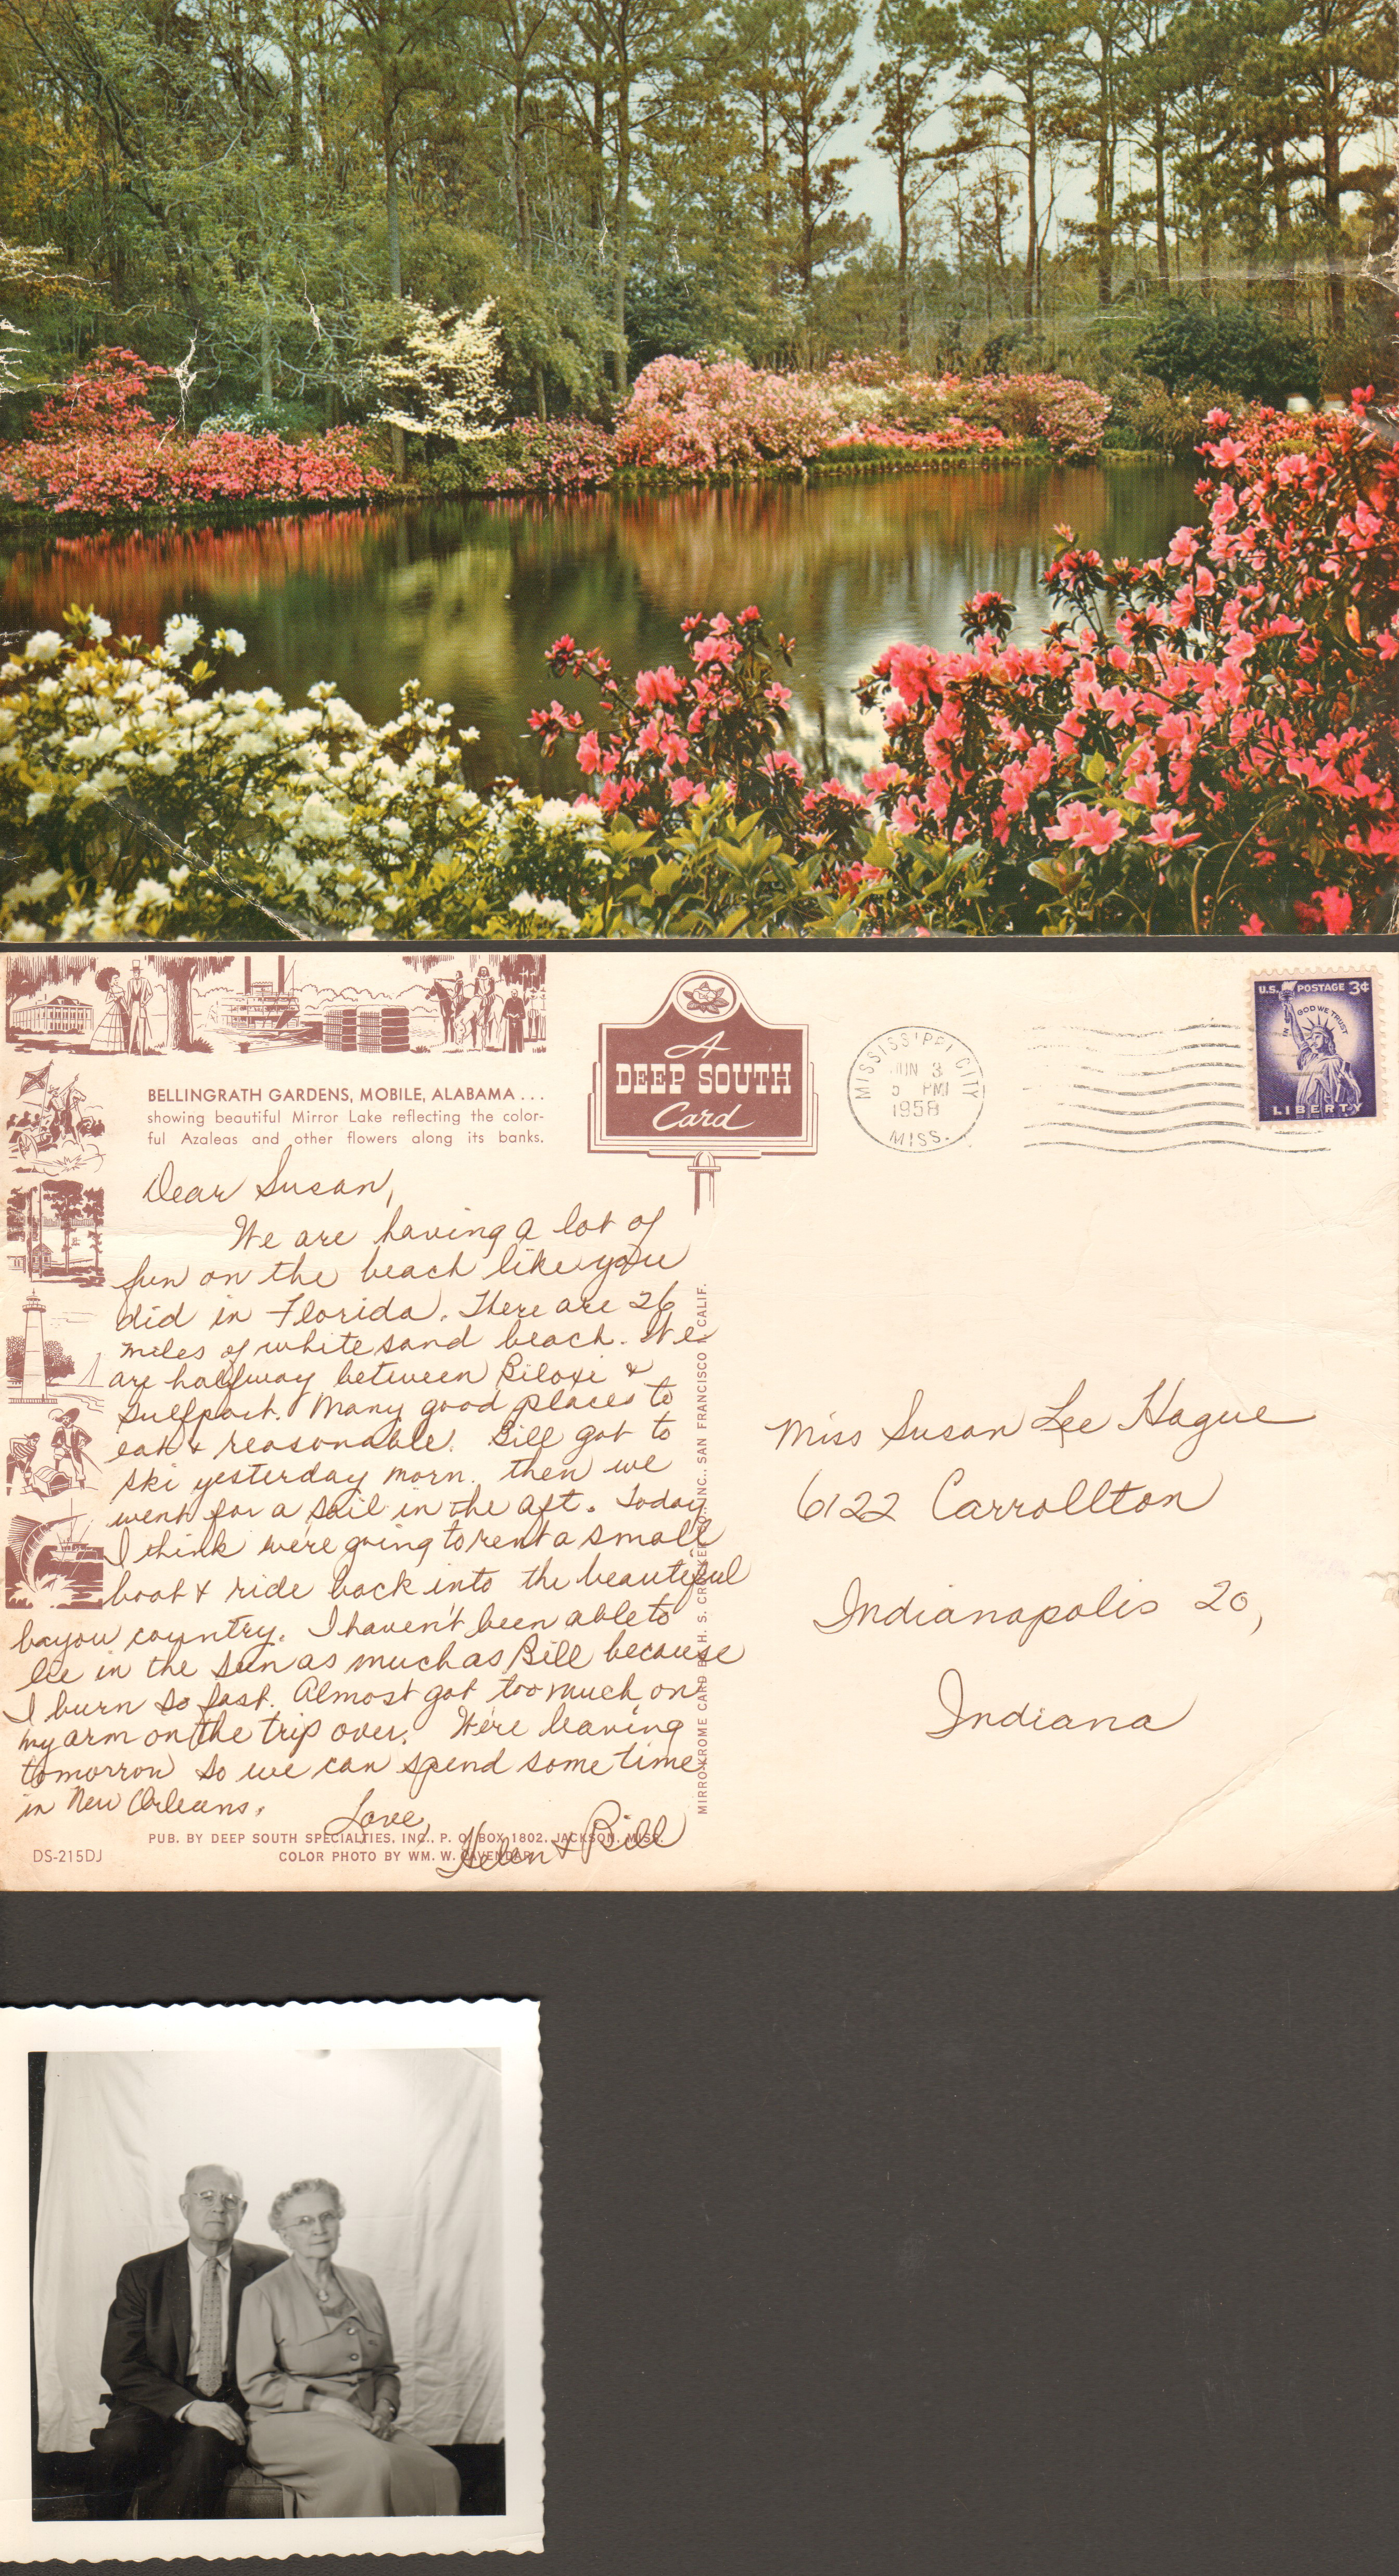 BELLINGRATH GARDENS, MOBILE, ALABAMA...
showing beautiful Mirror Lake reflecting the color-
ful Azaleas and other flowers along its banks.
A
DEEP SOUTH
Card
MISSISSIPPI CITY
JUN 3
5 PM
1958
MISS.
U.S. POSTAGE 3¢
IN GOD WE TRUST
LIBERTY
Dear Susan,
We are having a lot of
fun on the beach like you
did in Florida. There are 26
miles of white sand beach. We
are halfway between Biloxi &
Gulfport. Many good places to
eat & reasonable. Bill got to
ski yesterday morn. then we
went for a sail in the aft. Today
I think we're going to rent a small
boat & ride back into the beautiful
bayou country. I haven't been able to
lie in the sun as much as Bill because
I burn so fast. Almost got too much on
my arm on the trip over. We're leaving
tomorrow so we can spend some time
in New Orleans.
Love,
Helen & Bill
PUB. BY DEEP SOUTH SPECIALTIES, INC., P. O. BOX 1802, JACKSON, MISS.
COLOR PHOTO BY WM. W. CAVENDAR
DS-215DJ
MIRRO-KROME CARD BY H. S. CROCKER CO., INC., SAN FRANCISCO 1, CALIF.
Miss Susan Lee Hague
6122 Carrollton
Indianapolis 20,
Indiana